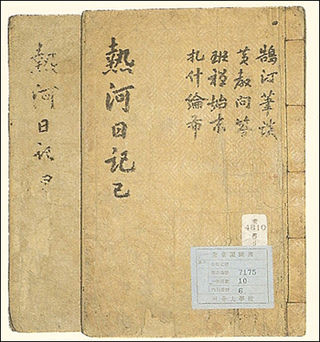 鵠汀筆談
黃教問答
班禪始末
札什倫布
熱河日記 己
熱河日記
4810
7175
10
6